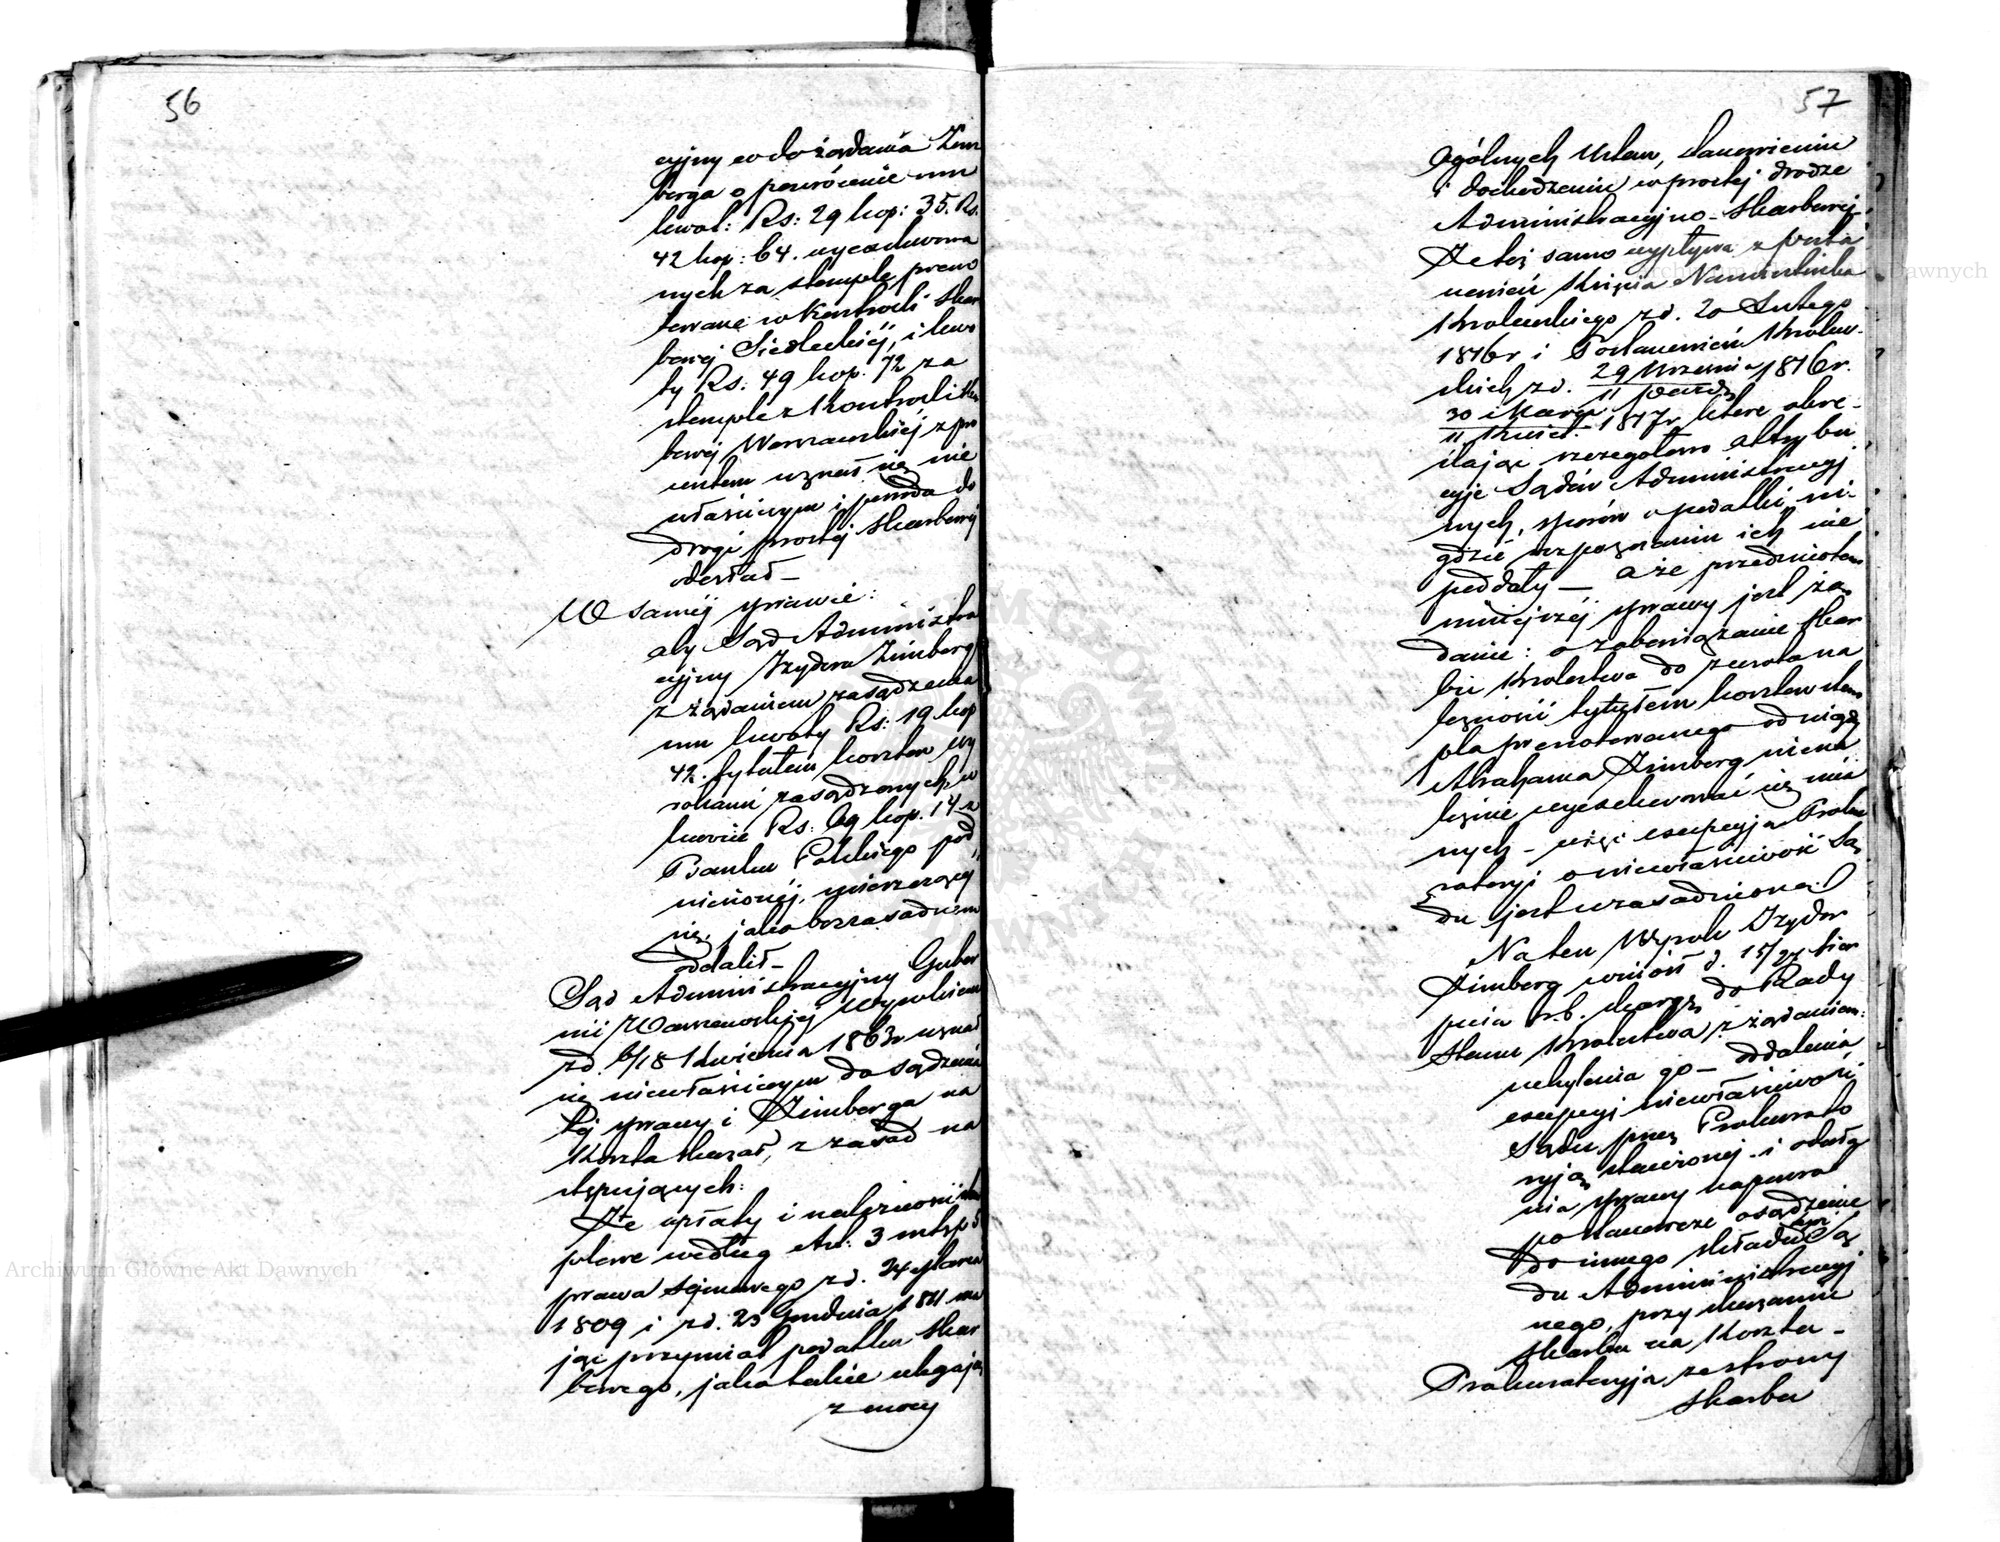 56
cyjny co do żądania Zim
berga o powrócenie mu
kwot: Rs: 29 kop: 35. Rs.
42 kop: 64. wycedowa
nych za stemple preno
towane w Kontroli Skar
bowej Siedleckiéj, i kwo
ty Rs. 49 kop. 72 za
stemple z Kontroli Skar
bowéj Warszawskiéj z pro
centem uznał się nie
właściwym i penda do
drogi prostéj skarbowéj
odesłał —
W saméj sprawie:
aby Sąd Administra
cyjny Izydora Zimberga
z żądaniem zasądzenia
mu kwoty Rs: 19 kop
42. tytułem kosztów wy
rokami zasądzonych w
kwocie Rs: 69 kop. 14 z
Banku Polskiego pod
niesionéj, mierzerącej
się, jako bezzasadnem
oddalił —
Sąd Administracyjny Guber
nii Warszawskiéj Wyrokiem
z d. 6/18 Kwietnia 1863r uznał
się niewłaściwym do sądzenia
téj sprawy i Zimberga na
Koszta skazał, z zasad na
stępujących:
Że opłaty i należności stem
plowe według Art: 3 ustęp 5
prawa sejmowego z d. 24 Marca
1809 i z d. 23 Grudnia 1811 ma
jąc przymiot podatku skar
bowego, jako takie ulegają
z mocy
57
Ogólnych Ustaw, stanowieniu
i dochodzeniu w prostéj drodze
Administracyjno-Skarbowéj.
Że toż samo wypływa z posta
nowień Księcia Namiestnika
Królewskiego z d. 20 Lutego
1816r i Postanowień Królew-
skich z d. 29 Września 1816r.
11 Paźdz
30 Marca 1817r, które okre-
11 Kwiet.
ślając szczegółowo attrybu
cyje Sądów Administracyj
nych, sporów o podatki, ni-
gdzie rozpoznaniu ich nie
poddały — a że przedmiotem
niniejszéj sprawy jest żą
danie: o zobowiązanie Skar
bu Królestwa do zwrotu na
leżności tytułem kosztów stem
pla prenotowanego od niegdy
Abrahama Zimberg niena
leżnie wycedowac się mia
nych — więc excepcyja Proku
ratoryi o niewłaściwość Są
du jest uzasadnioną.
Na ten Wyrok Izydor
Zimberg wniósł d. 15/27 Sier
pnia r.b. skargę do Rady
Stanu Królestwa, z żądaniem:
uchylenia go — oddalenia
excepcyi niewłaściwości
Sądu przez Prokurato
ryją stawionej i odesła
nia sprawy napowrot
po nowsze osądzenie
do innego składu tym Są
du Administracyj
nego, przy skazaniu
Skarbu na Koszta —
Prokuratoryja ze strony
Skarbu
Archiwum Główne Akt Dawnych